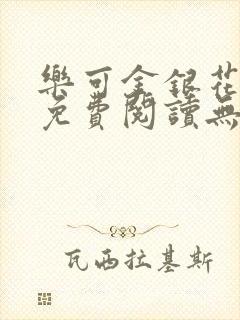 樂可金銀花
免費閱讀無
瓦西拉基斯